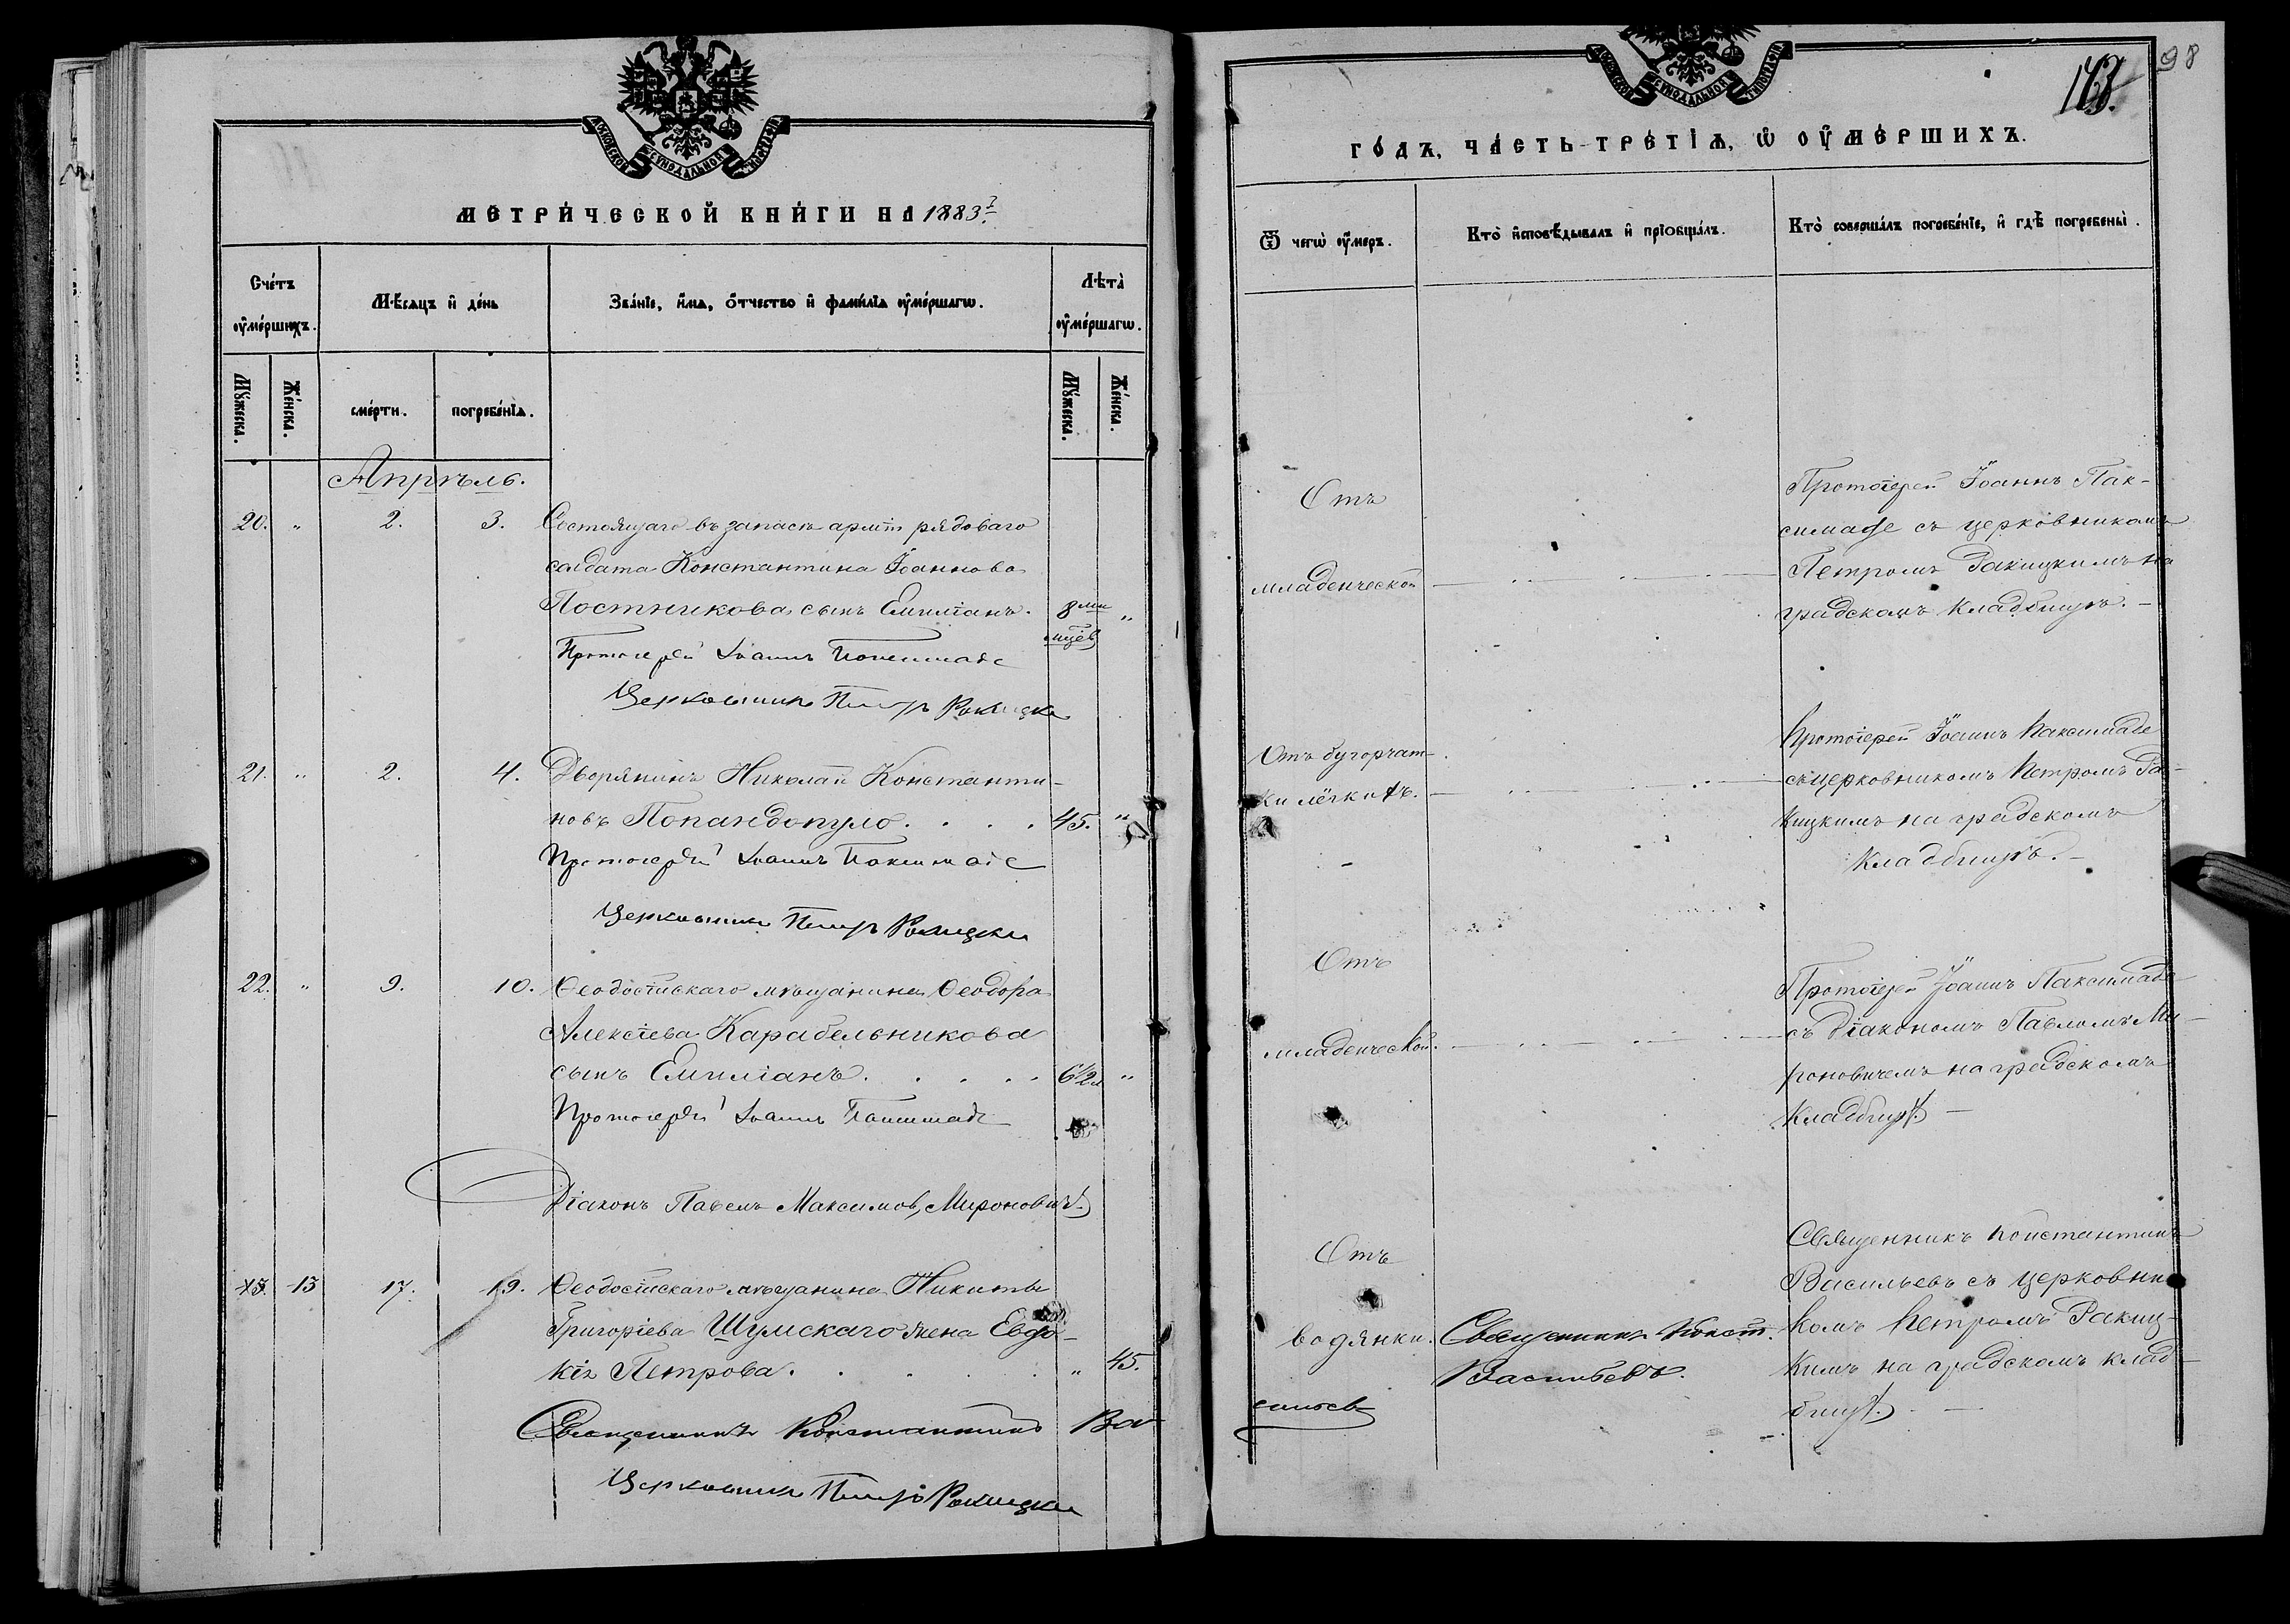 МОСКОВСКОЙ СѴНОДАЛЬНОЙ ТИПОГРАФІИ
МЕТРИ́ЧЕСКОЙ КНИ́ГИ НА 1883й
Сче́тъ оу҆ме́ршихъ.
Мѣ́сяцъ и҆ де́нь
Зва́ніе, и҆́мя, ѻ҆́тчество и҆ фами́лія оу҆ме́ршагѡ.
Лѣта̀ оу҆ме́ршагѡ.
Мꙋ́жеска.
Же́нска.
сме́рти.
погребе́нія.
Мꙋ́жеска.
Же́нска.
Апрѣль.
20. " 2. 3. Состоящаго въ запасѣ арміи рядоваго
солдата Константина Іоаннова
Постникова сынъ Емиліанъ. 8ми "
мцев
Протоіерей Іоаннъ Паксимаде
Церковникъ Петръ Ракицки
21. " 2. 4. Дворянинъ Николай Константи-
новъ Попандопуло. . . . 45. "
Протоіерей Іоаннъ Паксимаде
Церковникъ Петръ Ракицки
22. " 9. 10. Ѳеодосійскаго мѣщанина Ѳеодора
Алексіева Карабельникова
сынъ Емиліанъ. . . . . 6½ "
Протоіерей Іоаннъ Паксимаде
Діаконъ Павелъ Максимов, Мироновичъ
13 17. 19. Ѳеодосійскаго мѣщанина Никиты
Григоріева Шумскаго жена Евдо-
кія Петрова. . . . . " 45.
Священникъ Константинъ Ва
Церковникъ Петръ Ракицки
98
МОСКОВСКОЙ СѴНОДАЛЬНОЙ ТИПОГРАФІИ
ГО́ДЪ, ЧА́СТЬ ТРЕ́ТІѦ, Ѡ҆ ОУ҆МЕ́РШИХЪ.
Ѿ чегѡ̀ оу҆́меръ.
Кто̀ и҆сповѣ́дывалъ и҆ прїобща́лъ.
Кто̀ соверша́лъ погребе́ніе, и҆ гдѣ̀ погребены̀.
Отъ
младенческой
Протоіерей Іоаннъ Пак-
симаде съ церковникомъ
Петромъ Ракицкимъ на
градскомъ кладбищѣ.-
Отъ бугорчат-
ки лёгкихъ.
Протоіерей Іоаннъ Паксимаде
съ церковникомъ Петромъ Ра-
кицкимъ на градскомъ
кладбищѣ.-
Отъ
младенческой.
Протоіерей Іоаннъ Паксимаде
съ діакономъ Павломъ Ми-
роновичемъ на градскомъ
кладбищѣ.-
Отъ
водянки.
Священникъ Конст.
Васильевъ.
Священникъ Константинъ
Васильевъ съ церковни
комъ Петромъ Ракиц-
кимъ на градскомъ клад-
бищѣ.-
сильев